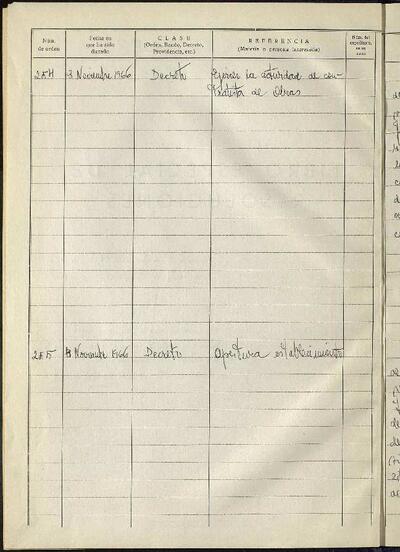 Núm. de orden
Fecha en que ha sido dictado
CLASE
(Orden, Bando, Decreto, Providencia, etc.)
REFERENCIA
(Materia o persona interesada)
Núm. del expediente
8 Noviembre 1966
Decreto
Ejercer la actividad de con-
tratista de Obras
8 Noviembre 1966
Decreto
apertura establecimiento